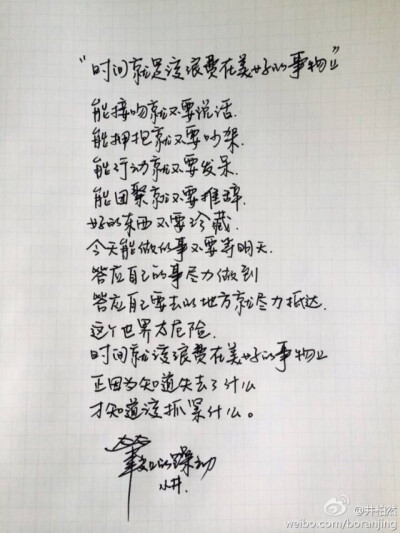 “时间就是该浪费在美好的事物上”
能接吻就不要说话.
能拥抱就不要吵架.
能行动就不要发呆.
能团聚就不要推辞.
好的东西不要珍藏.
今天能做的事不要等明天.
答应自己的事尽力做到
答应自己要去的地方就尽力抵达.
这个世界太危险.
时间就该浪费在美好的事物上
正因为知道失去了什么
才知道该抓紧什么。
的躁动
小井.
@井柏然
weibo.com/boranjing